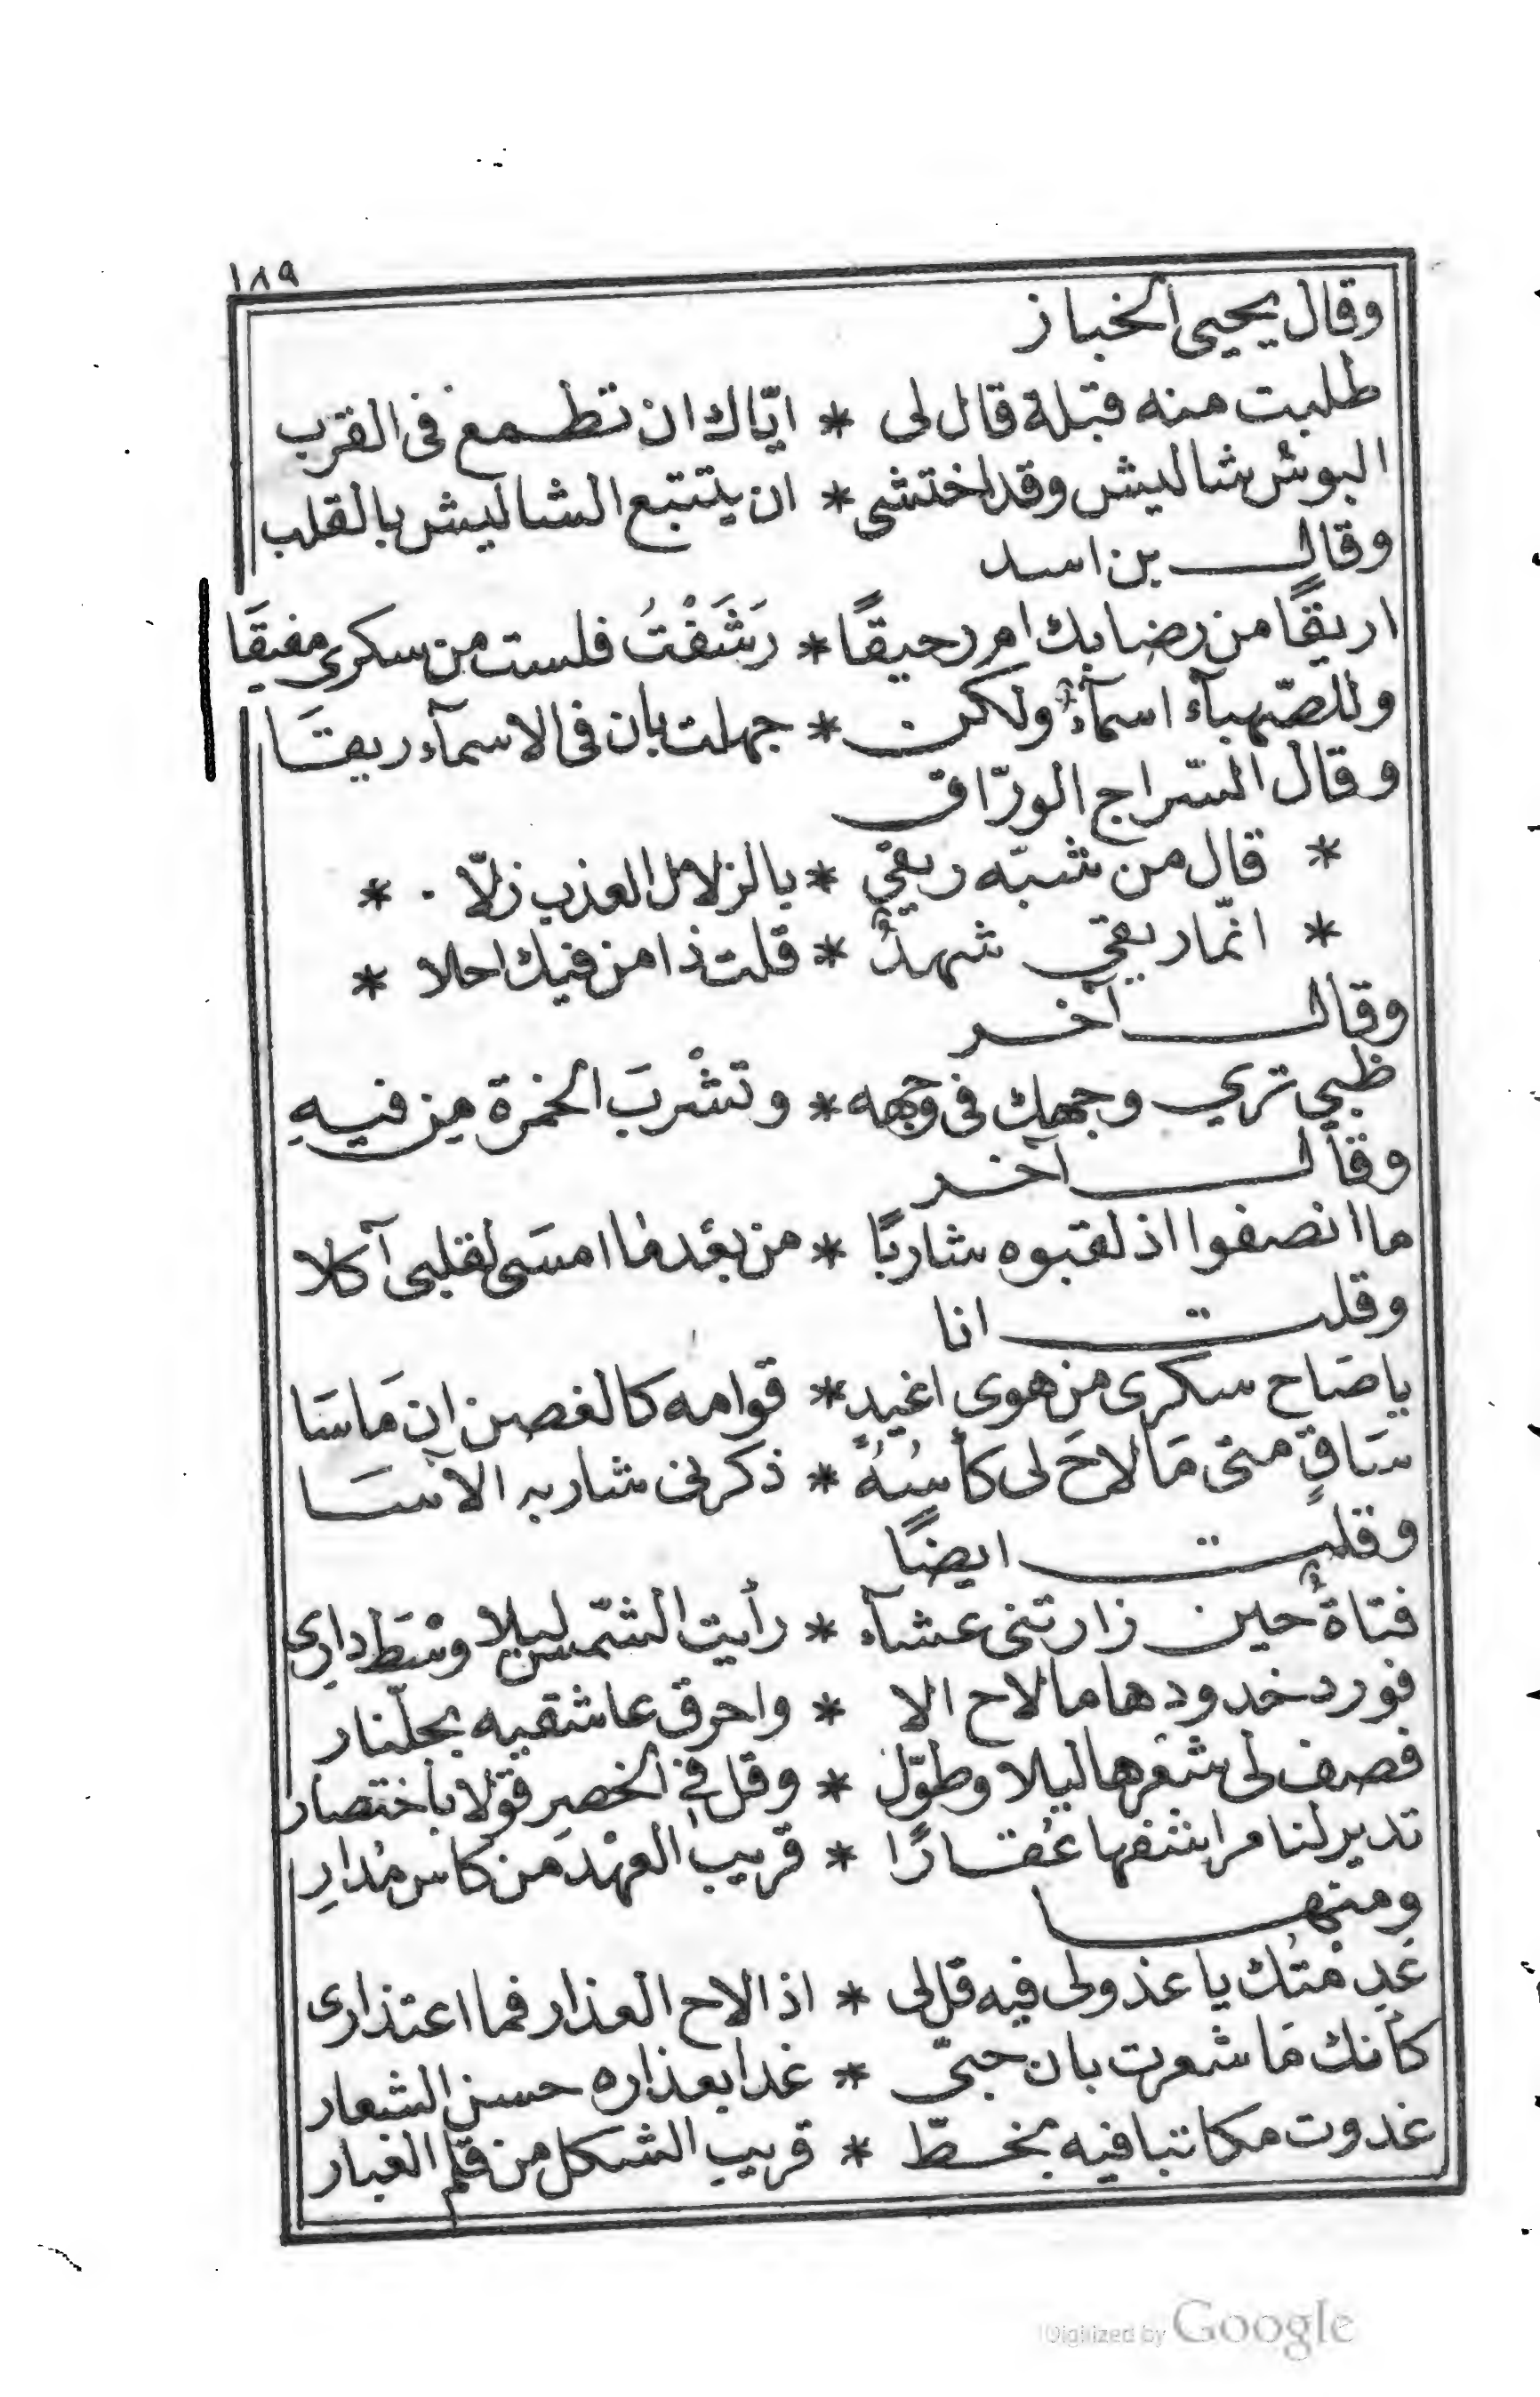 ١٨٩
وقال يحيى الخباز
طلبت منه قبلة قال لى * ايّاك ان تطمع فى القرب
البوش شاليش وقد اختشى * ان يتتبع الشاليش بالقلب
وقال بن اسد
اريقًا من رضابك ام رحيقًا * رَشَفْتُ فلست من سكري مفيقَا
وللصّهبآء اسمآءٌ ولكن * جهلت بان فى الاسمآء ريقَا
وقال السّراج الورّاق
* قال من شبّه ريقي * بالزلال العذب زلّا *
* انّما ريقي شهدٌ * قلت ذا من فيك احلا *
وقال آخر
ظبي تري وجهك فى وجهه * وتشْربَ الخمرة مِن فيهِ
وقال آخر
ما انصفوا اذ لقبوه شاربًا * من بعد ما امسَى لقلبى آكلا
وقلت انا
يا صَاح سكرى من هوى اغيدٍ * قوامه كالغصن ان مَاسَا
سَاقٍ متى مَا لاحَ لى كأسُهُ * ذكرنى شاربه الآسَا
وقلت ايضًا
فتاةٌ حين زارتنى عشآء * رأيت الشّمس ليلا وسْطَ دارِي
فورد خدودها ما لاح الا * واحرق عاشقيه بجلّنار
فصف لى شعرها ليلا وطوّل * وقل فى الخصرِ قوْلا باختصار
تدير لنا مراشفها عُقارًا * قريب العهْد من كاس مُدارِ
ومنها
عَدِمْتُك يا عذولى فيه قل لى * اذا لاح العذار فما اعتذارى
كأنك مَا شعرت بان حبّى * غدا بعذاره حسن الشعار
غدوت مكاتبا فيه بخطّ * قريبِ الشكل من قلم الغبار
Digitized by Google